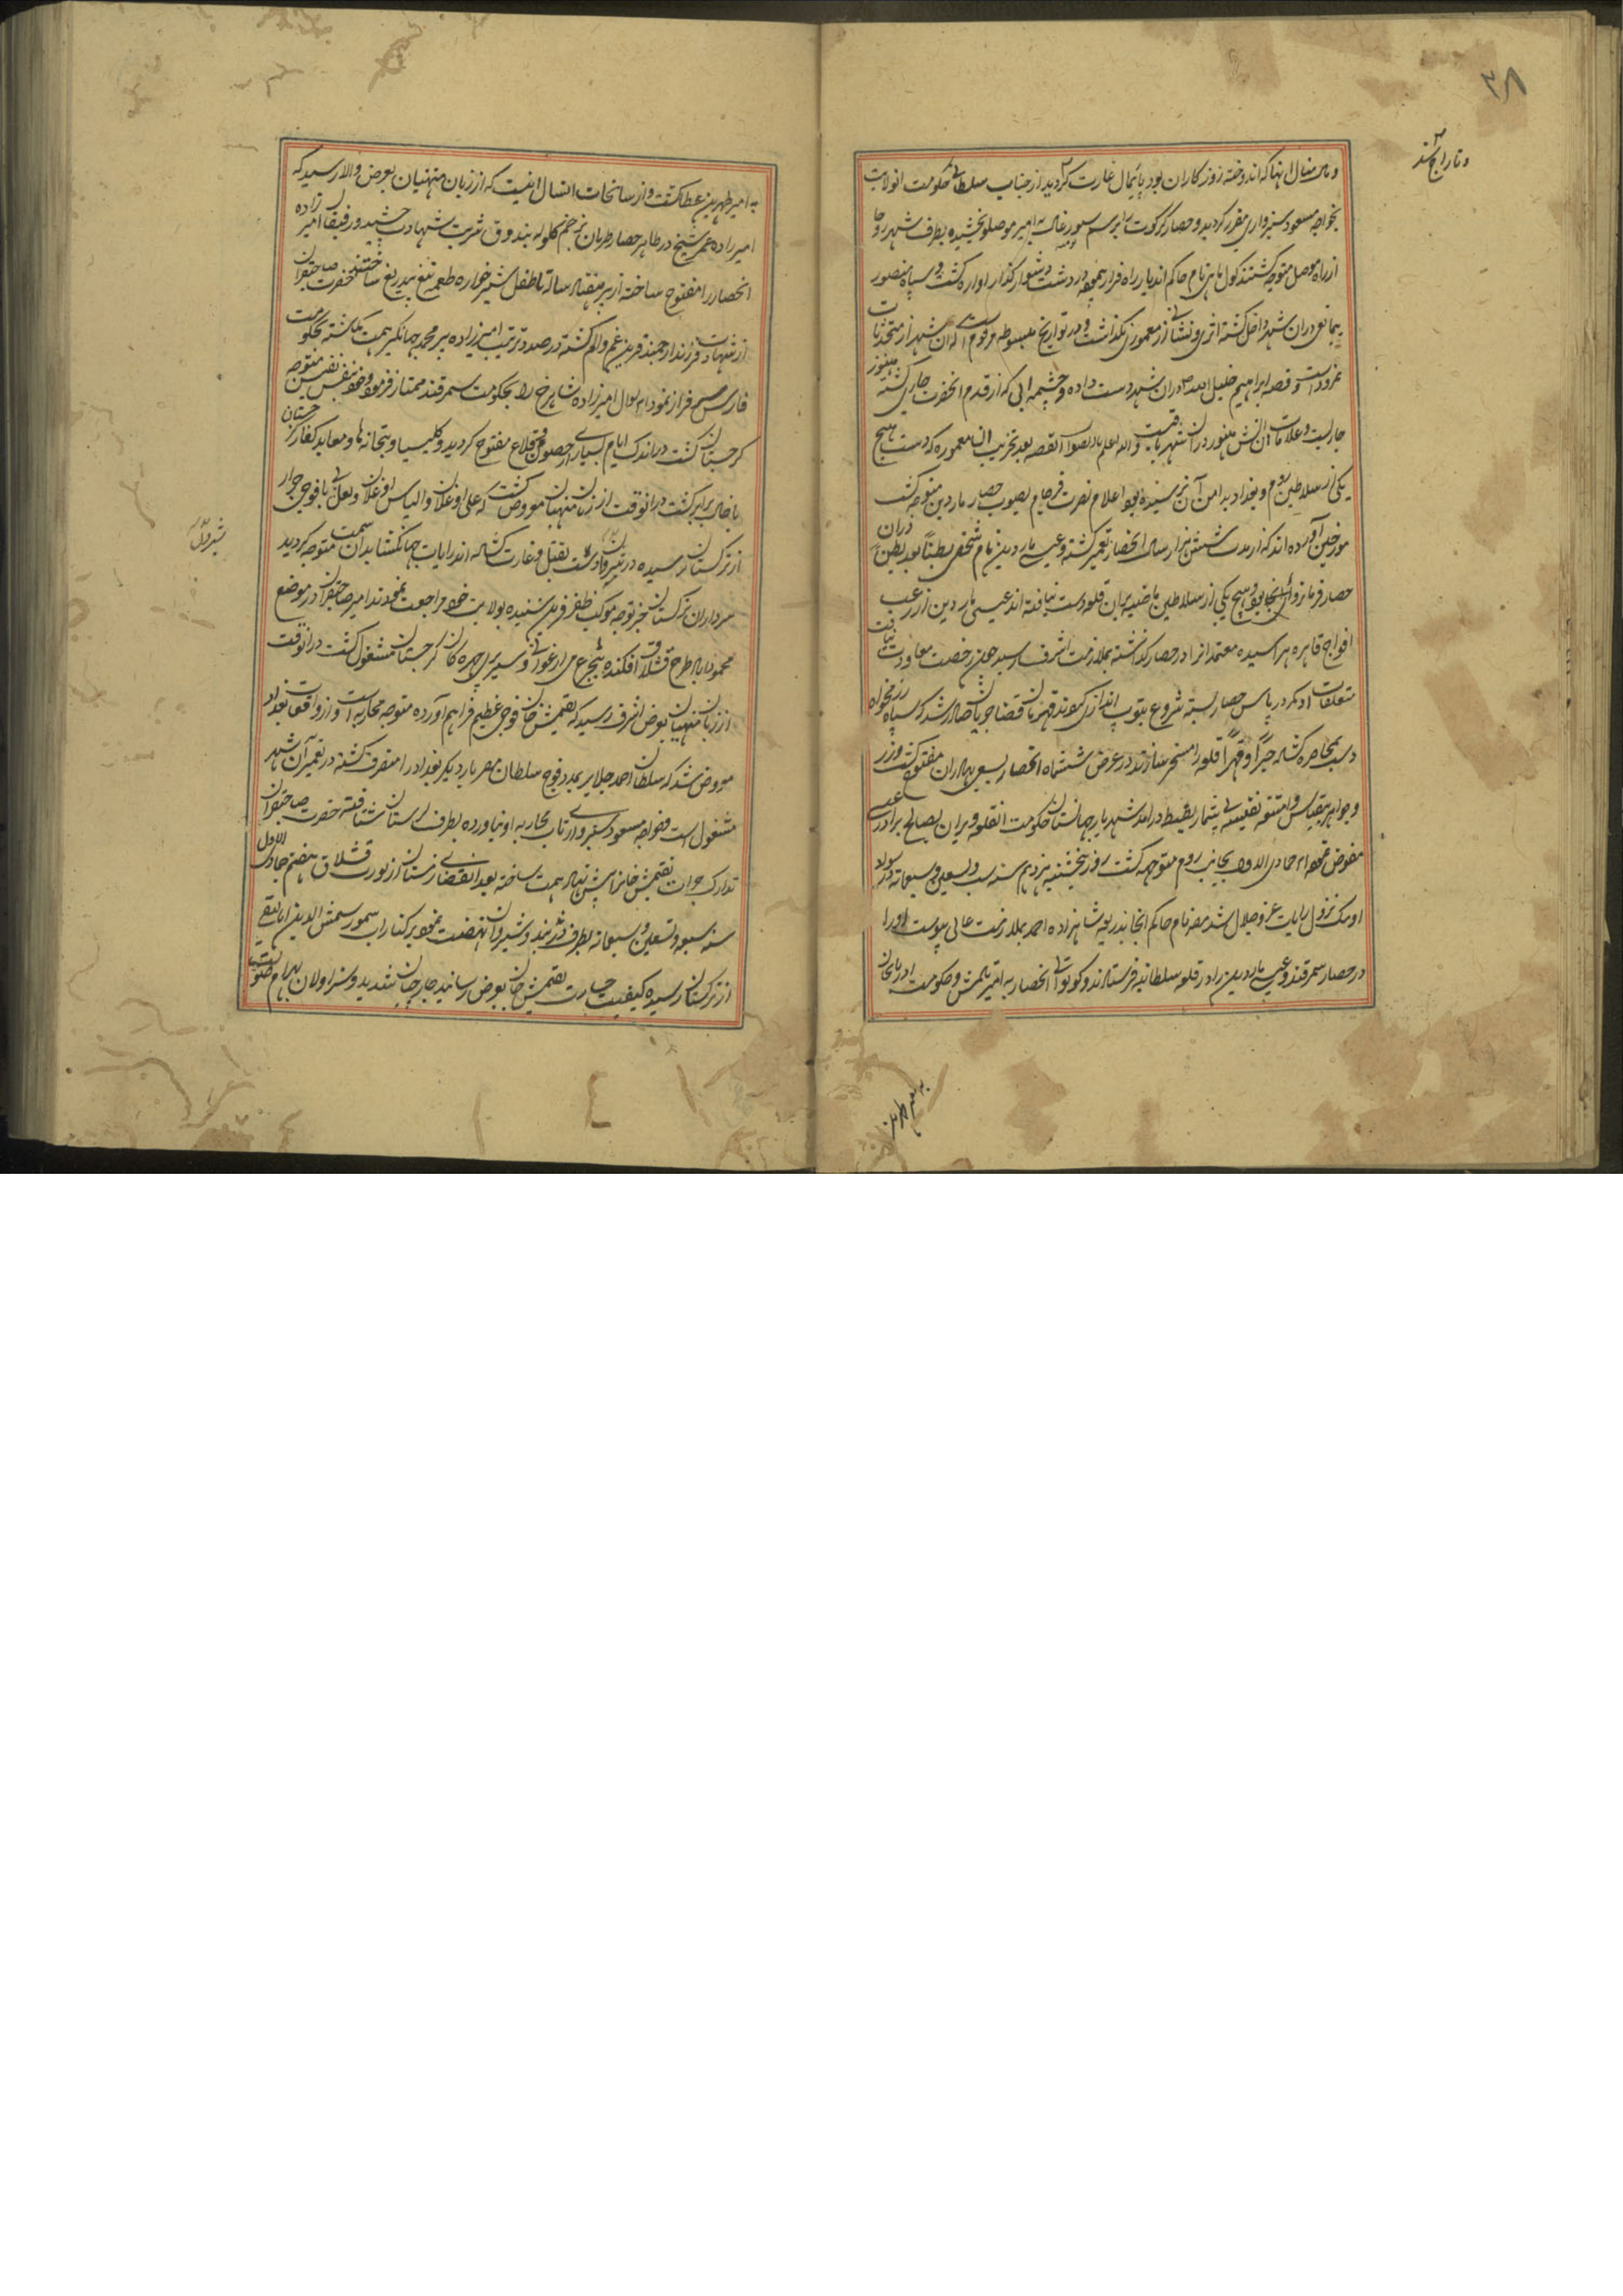 ۳۸
و تاراج شد
و مال منال آنها که اندوخته روزکاران بود پایمال غارت کردید از جناب سلطانی حکومت انولایت
بخواجه مسعود سبزواری مقرر کردید و حصار کرکوت برسم سیورغال به امیر موصلو بخشیده بطرف شهر روحا
از راه موصل متوجه کشتند کول نام حاکم اندیار راه فرار پیموده در دشت دشوار کذار اواره کشت و سپاه منصور
بیمانع دران شهر داخل کشته اثری و نشانی از معموری نکذاشت و در تواریخ مبسوطه مرقوم است که ان شهر از متحدثات
نمرود است و قصه ابراهیم خلیل الله دران شهر دست داده و چشمه ابی که از قدم انحضرت جاری کشته هنوز
جاریست و علامات اتش هنوز دران شهر باقیست والله اعلم بالصواب القصه بعد تخریب ان معموره که دست هیچ
یکی از سلاطین روم و بغداد به امن آن نرسیده بود اعلام نصرت فرجام بصوب حصار ماردین متوجه کشت
مورخین آورده اند که از مدت شش هزار سال انحصار تعمیر کشته و عیسی ماردین نام شخصی بطناً بعد بطن دران
حصار فرمانروای انجا بود و هیچ یکی از سلاطین ماضیه بران قلعه دست نیافته اند عیسی ماردین از رعب
افواج قاهره هراسیده معتمد انرا در حصار کذاشته بملازمت اشرف رسید چون رخصت معاودت نیافت
متعلقات او کمر در پاس حصار بسته شروع بتوپ اندازی نمودند قهرمان قضا جریان صادر شد که سپاه رزمخواه
دست بمحاصره کشاده جبراً و قهراً قلعه را مسخر سازند در عرض ششماه انحصار بسعی بهادران مفتوح کشت و زر
و جواهر بیقیاس و امتعه نفیسه بی شمار بضبط درامد شهریار جهانستان حکومت انقلعه ویران بصالح برادر عیسی
مفوض نموده ماه جمادی الاول بجانب روم متوجه کشت روز پنجشنبه یزدهم سنه ست و تسعین و سبعمایه در سواد
اومک نزول رایات عز و جلال شد مضر نام حاکم انجا بذریعه شاهزاده احمد بملازمت عالی پیوست اورا
در حصار سمرقند و عیسی ماردین را در قلعه سلطانیه فرستادند و کوتوالی انحصار به امیر یالمش و حکومت اذربایجان
به امیر طهرتن
به امیر طهرتن عطا کشت و از سانحات انسال اینست که از زبان منهیان بعرض والا رسید که
امیرزاده عمر شیخ در ظاهر حصار طربان بزخم کلوله بندوق شربت شهادت چشید و رفیقان امیر زاده
انحصار را مفتوح ساخته از پیر هفتاد ساله تا طفل شیرخواره طعمه تیغ بیدریغ ساختند حضرت صاحبقران
از شهادت فرزند ارجمند قرین غم و الم کشته در صدد ترتیب امیرزاده پیر محمد جهانکیر همت کماشته بحکومت
فارس سرفراز نمود ماه شوال امیرزاده شاهرخ را بحکومت سمرقند ممتاز فرموده خود بنفس نفیس متوجه
کرجستان کشت در اندک ایام بسیاری از حصون و قلاع مفتوح کردید و کلیسا و بتخانه ها و معابد کفار کرجستان
با خاک برابر کشت درانوقت از زبان منهیان معروض کشت که علی اوغلان و الیاس اوغلان و یغلی بی با فوجی جرار
از ترکستان رسیده در شیروان دست بقتل و غارت کشاده اند رایات جهانکشا بدان سمت متوجه کردید
سرداران ترکستان خبر توجه موکب ظفر قرین شنیده بولایت خود مراجعت نمودند امیر صاحبقران در موضع
محموداباد طرح قشلاق افکنده بتجرع می ارغوانی و سیر پری چهره کان کرجستان مشغول کشت درانوقت
از زبان منهیان بعرض اشرف رسید که تقتمش خان فوجی عظیم فراهم آورده متوجه محاربه است و از واقعات بغداد
معروض شد که سلطان احمد جلایر بمدد فوج سلطان مصر بار دیکر بغداد را متصرف کشته در تعمیر آن شهر
مشغول است و خواجه مسعود سبزواری تاب محاربه او نیاورده بطرف لرستان شتافته حضرت صاحبقران
تدارک جرات تقتمش خان را پیش نهاد همت ساخته بعد انقضای زمستان از یورت قشلاق هفتم جمادی الاول
سنه سبع و تسعین و سبعمایه بطرف دربند و شیروان نهضت نموده بر کنار اب سمور شمس الدین المالیقی
از ترکستان رسیده کیفیت جسارت تقتمش خان بعرض رسانید جارچیان تند دید و سزاولان بهرام صلوت